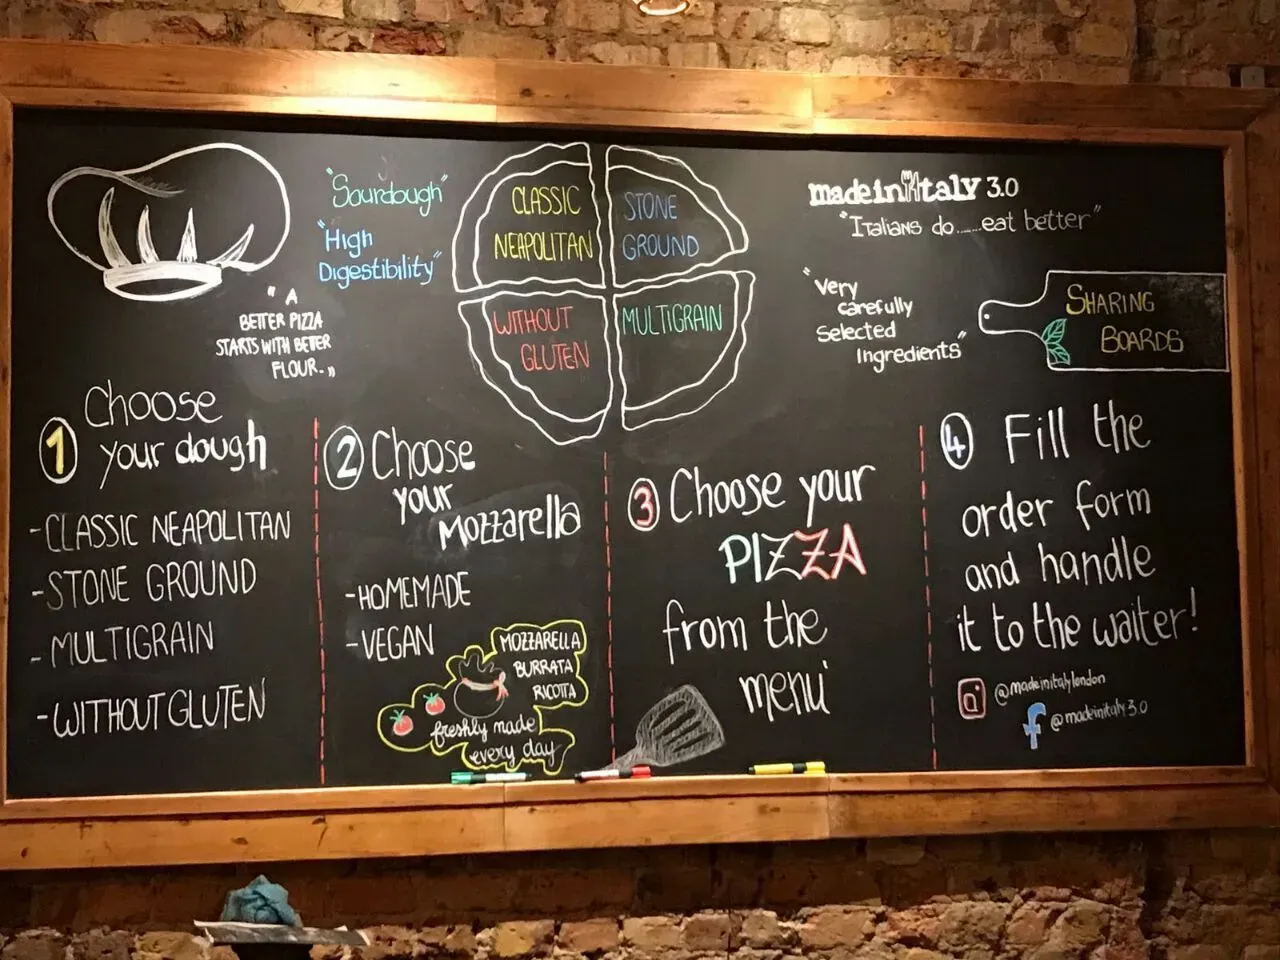 "Sourdough"
"High
Digestibility"
"A
BETTER PIZZA
STARTS WITH BETTER
FLOUR."
CLASSIC
NEAPOLITAN
STONE
GROUND
WITHOUT
GLUTEN
MULTIGRAIN
madeinitaly 3.0
"Italians do......eat better"
"Very
carefully
Selected
Ingredients"
SHARING
BOARDS
1 Choose
your dough
-CLASSIC NEAPOLITAN
-STONE GROUND
-MULTIGRAIN
-WITHOUT GLUTEN
2 Choose
your
Mozzarella
-HOMEMADE
-VEGAN
MOZZARELLA
BURRATA
RICOTTA
freshly made
every day
3 Choose your
PIZZA
from the
menu
4 Fill the
order form
and handle
it to the waiter!
@madeinitalylondon
f @madeinitaly3.0